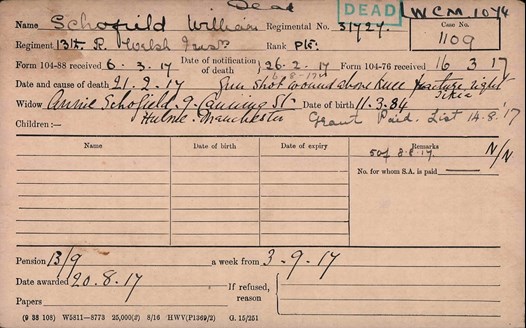 Dead DEAD WCM 1074
Name Schofield William Regimental No. 51727. Case No.
Regiment 13th R. Welsh Fus. Rank Pte. 1109
Form 104-88 received 6.3.17 Date of notification of death 26.2.17 Form 104-76 received 16 3 17
Date and cause of death 21.2.17 Gun Shot wound above knee fracture right
Widow Annie Schofield. 9. Canning St. Date of birth 11.3.84
Children:— Hulme. Manchester Grant Paid. List 14.8.17
Name Date of birth Date of expiry Remarks
8.8.17. N/N
No. for whom S.A. is paid
Pension 13/9 a week from 3.9.17
Date awarded 20.8.17 If refused, reason
Papers
(9 38 108) W5811—8773 25,000(2) 8/16 HWV(P1369/2) G. 15/251